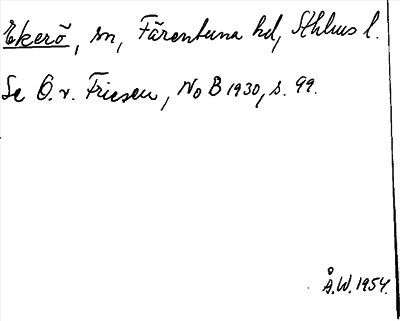 Ekerö, sn, Färentuna hd, Sthlms l.
Se O. v. Friesen, NoB 1930, s. 99.
Å.W. 1954.